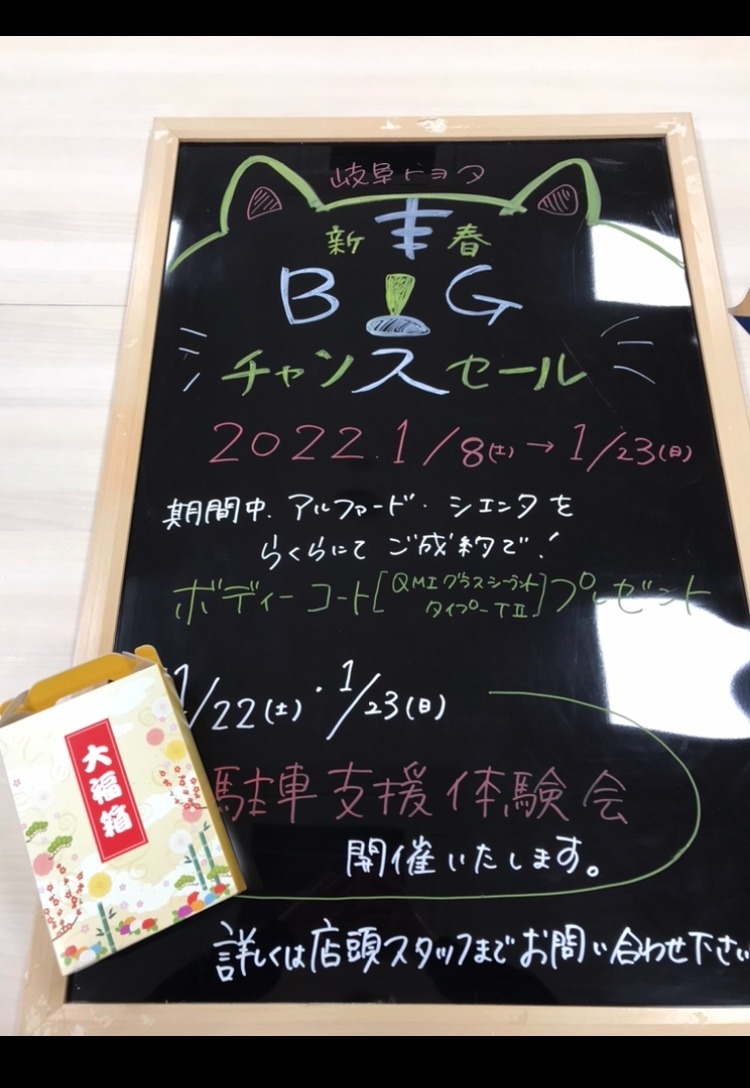 岐阜トヨタ
新春
B!G
チャンスセール
2022.1/8(土)→1/23(日)
期間中、アルファード・シエンタを
らくらにて ご成約で!
ボディーコート[QMIグラスシーラント タイプ-TⅡ]プレゼント
1/22(土)・1/23(日)
駐車支援体験会
開催いたします。
詳しくは店頭スタッフまでお問い合わせ下さい
大福箱